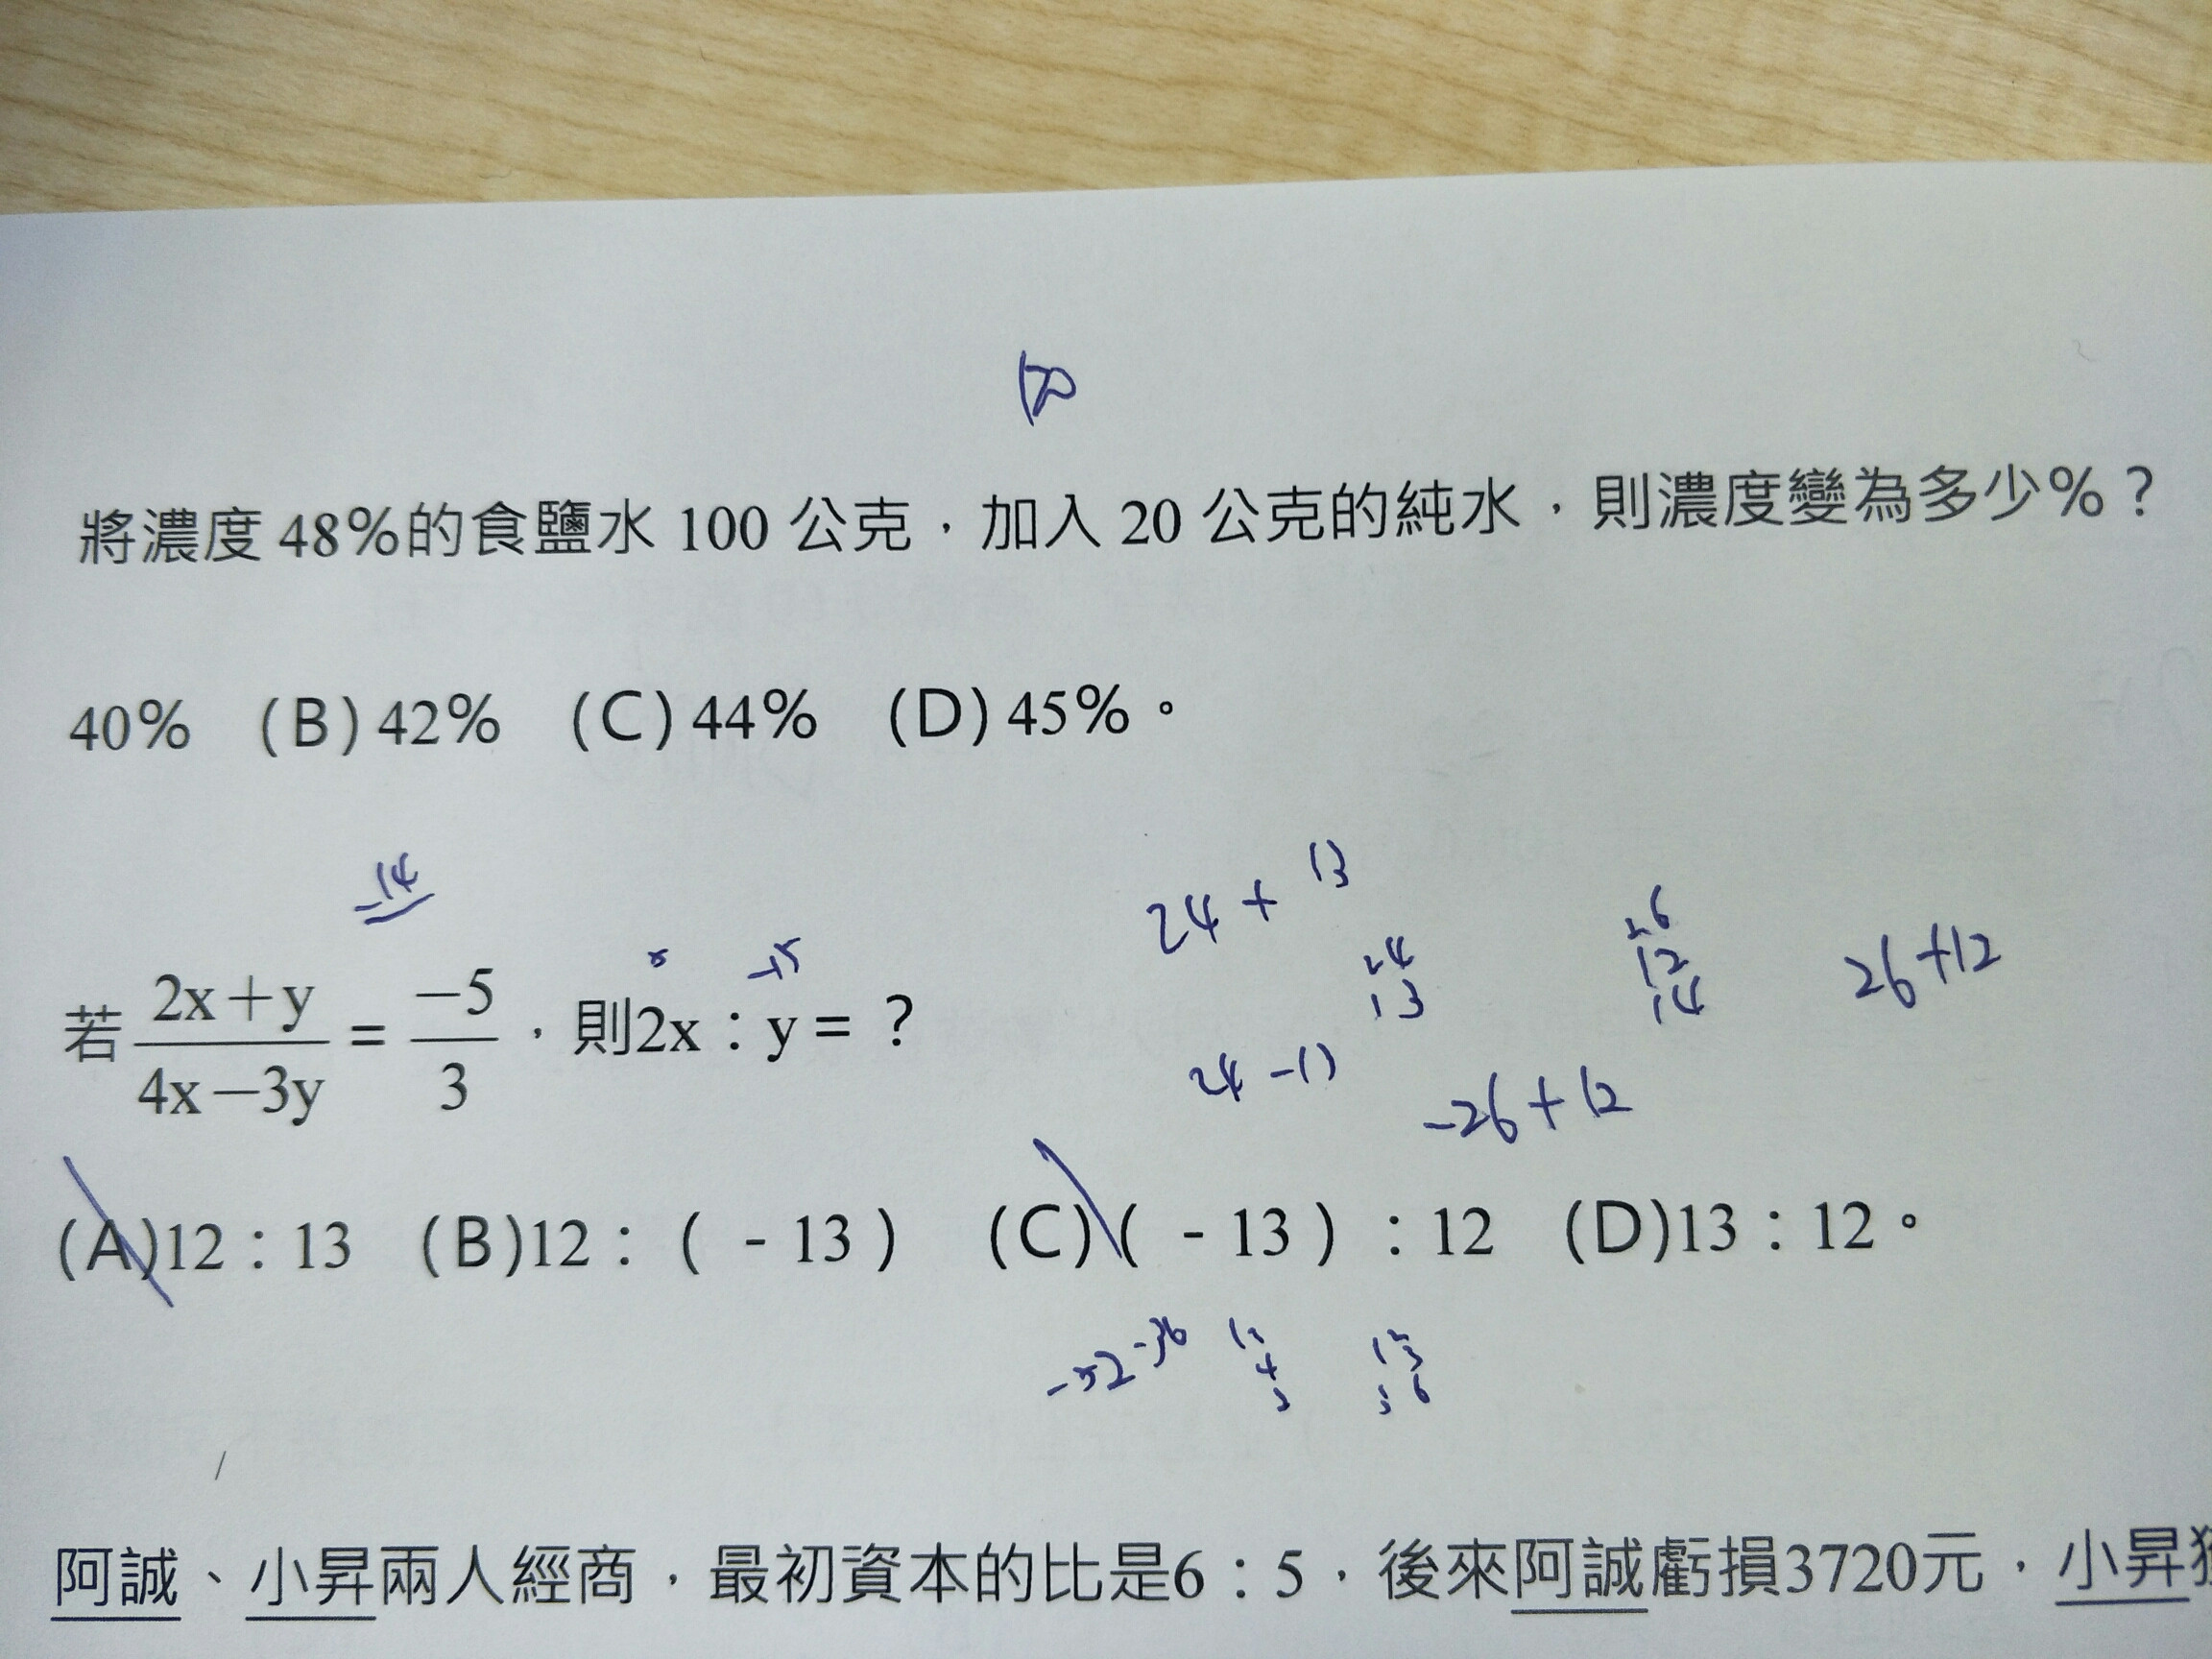 將濃度 48%的食鹽水 100 公克，加入 20 公克的純水，則濃度變為多少%？
40% (B) 42% (C) 44% (D) 45%。
-14
24 + 13
24
13
26
12
14
26+12
若 2x+y / 4x−3y = −5 / 3，則2x：y=？
24 -13
-26+12
(A)12：13 (B)12：( - 13 ) (C) ( - 13 ) ：12 (D)13：12。
阿誠、小昇兩人經商，最初資本的比是6：5，後來阿誠虧損3720元，小昇